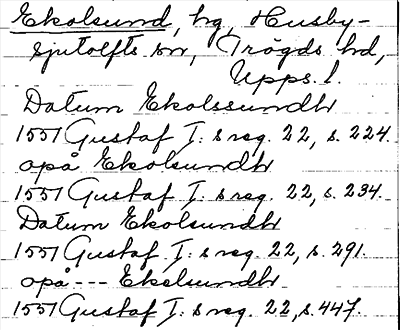 Ekolsund, hg, Husby-
sjutolfts sn, Trögds hd,
Upps. l.
Datum Ekolssundh
1551 Gustaf I: s reg. 22, s. 224.
opå Ekolsundh
1551 Gustaf I: s reg. 22, s. 234.
Datum Ekolsundh
1551 Gustaf I: s reg. 22, s. 291.
opå --- Ekelsundh
1551 Gustaf I: s reg. 22, s. 447.